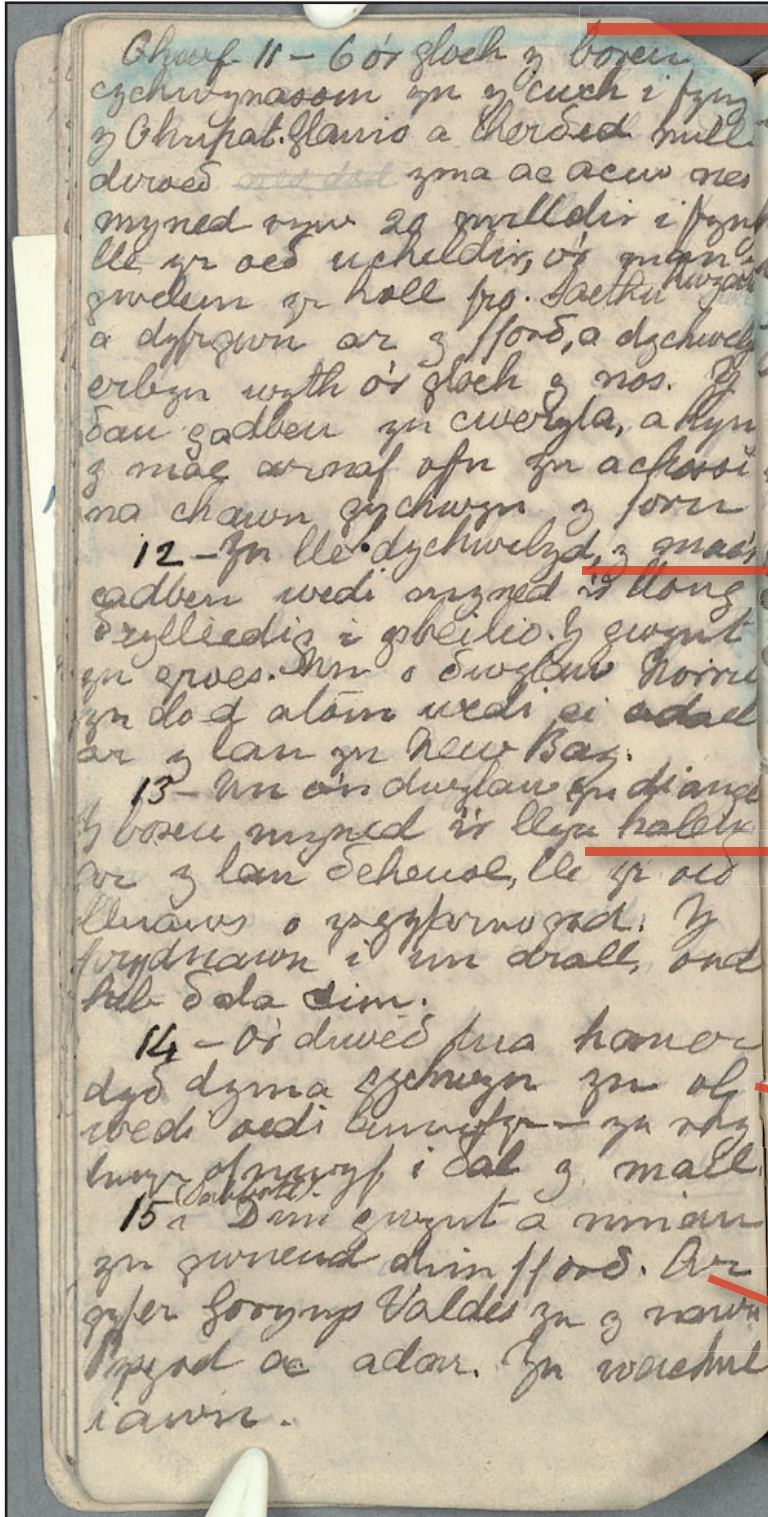 Chwef 11 – 6 o'r gloch y boreu
cychwynasom yn y cwch i fyny
y Chupat. Glanio a cherðed
diroeð yma ac acw nes
myned ryw 20 milldir i fyny
lle yr oeð ucheldir, o'r man
gwelem yr holl fro. Saethu
a dyfrgwn ar y fforð, a dychwely
erbyn wyth o'r gloch y nos. Y
ðau gadben yn cweryla, a hyn
y mae arnaf ofn yn achosi
na chawn gychwyn y foru
12 – Yn lle dychwelyd, y mae'r
cadben wedi myned i'r llong
ðrylliedig i ysbeilio. Y gwynt
yn groes. Un o ðwylaw
yn dod atom wedi ei adael
ar y lan yn New Bay.
13 – Un o'n dwylaw yn diange
Y boreu myned i'r llyn halen
ar y lan ðeheuol, lle yr oeð
lluaws o ysgyfarnogod. Y
prydnawn i un arall, ond
heb ðala dim.
14 – O'r diweð tua haner
dyð dyma gychwyn yn ol
wedi oedi - yn rhy
lwyr ofnwyf i ðal y mail.
15 (Sabboth). Dim gwynt a ninau
yn gwneud dim fforð. Ar
gyfer Gorynys Valdes yn y nawn
Pysgod ac adar. Yn
iawn.